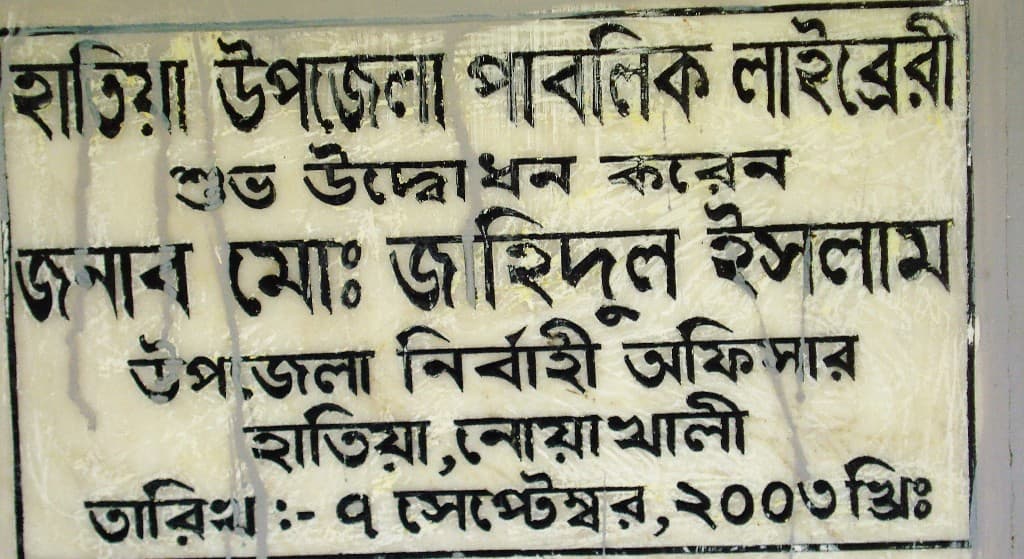 হাতিয়া উপজেলা পাবলিক লাইব্রেরী
শুভ উদ্বোধন করেন
জনাব মোঃ জাহিদুল ইসলাম
উপজেলা নির্বাহী অফিসার
হাতিয়া,নোয়াখালী
তারিখ :- ৭ সেপ্টেম্বর, ২০০৩ খ্রিঃ